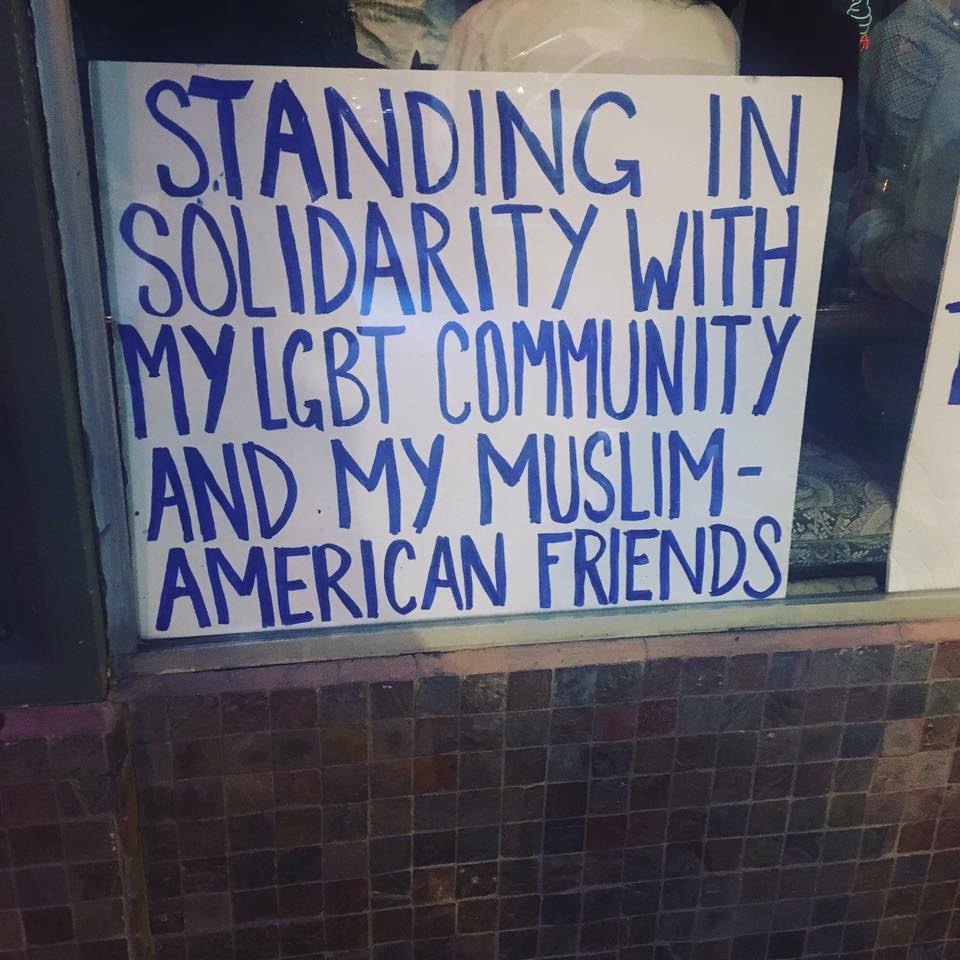 STANDING IN
SOLIDARITY WITH
MY LGBT COMMUNITY
AND MY MUSLIM-
AMERICAN FRIENDS